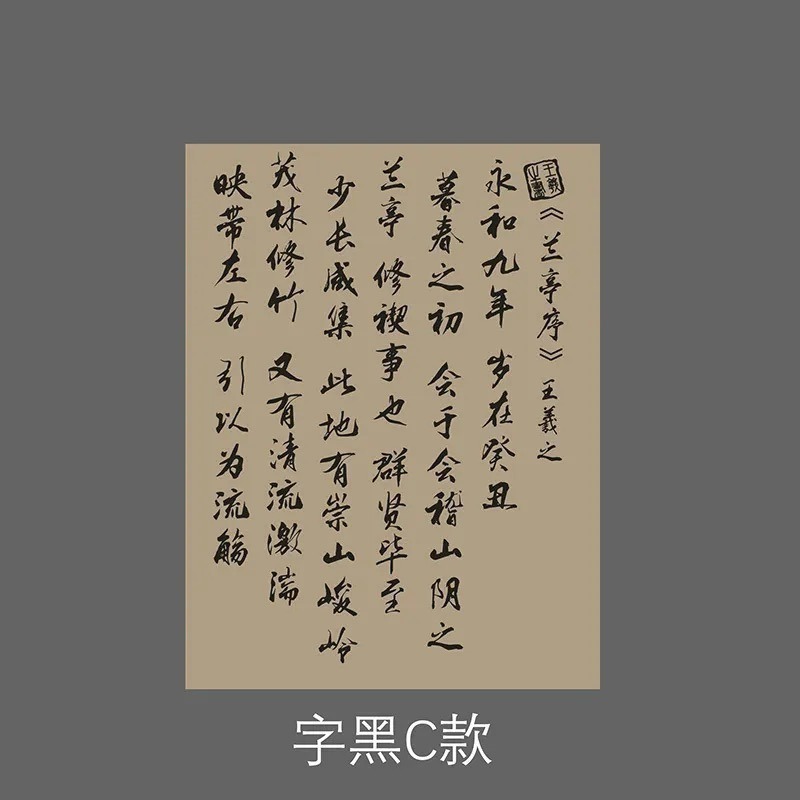 《兰亭序》王羲之
永和九年 岁在癸丑
暮春之初 会于会稽山阴之
兰亭 修禊事也 群贤毕至
少长咸集 此地有崇山峻岭
茂林修竹 又有清流激湍
映带左右 引以为流觞
王羲之書
字黑C款